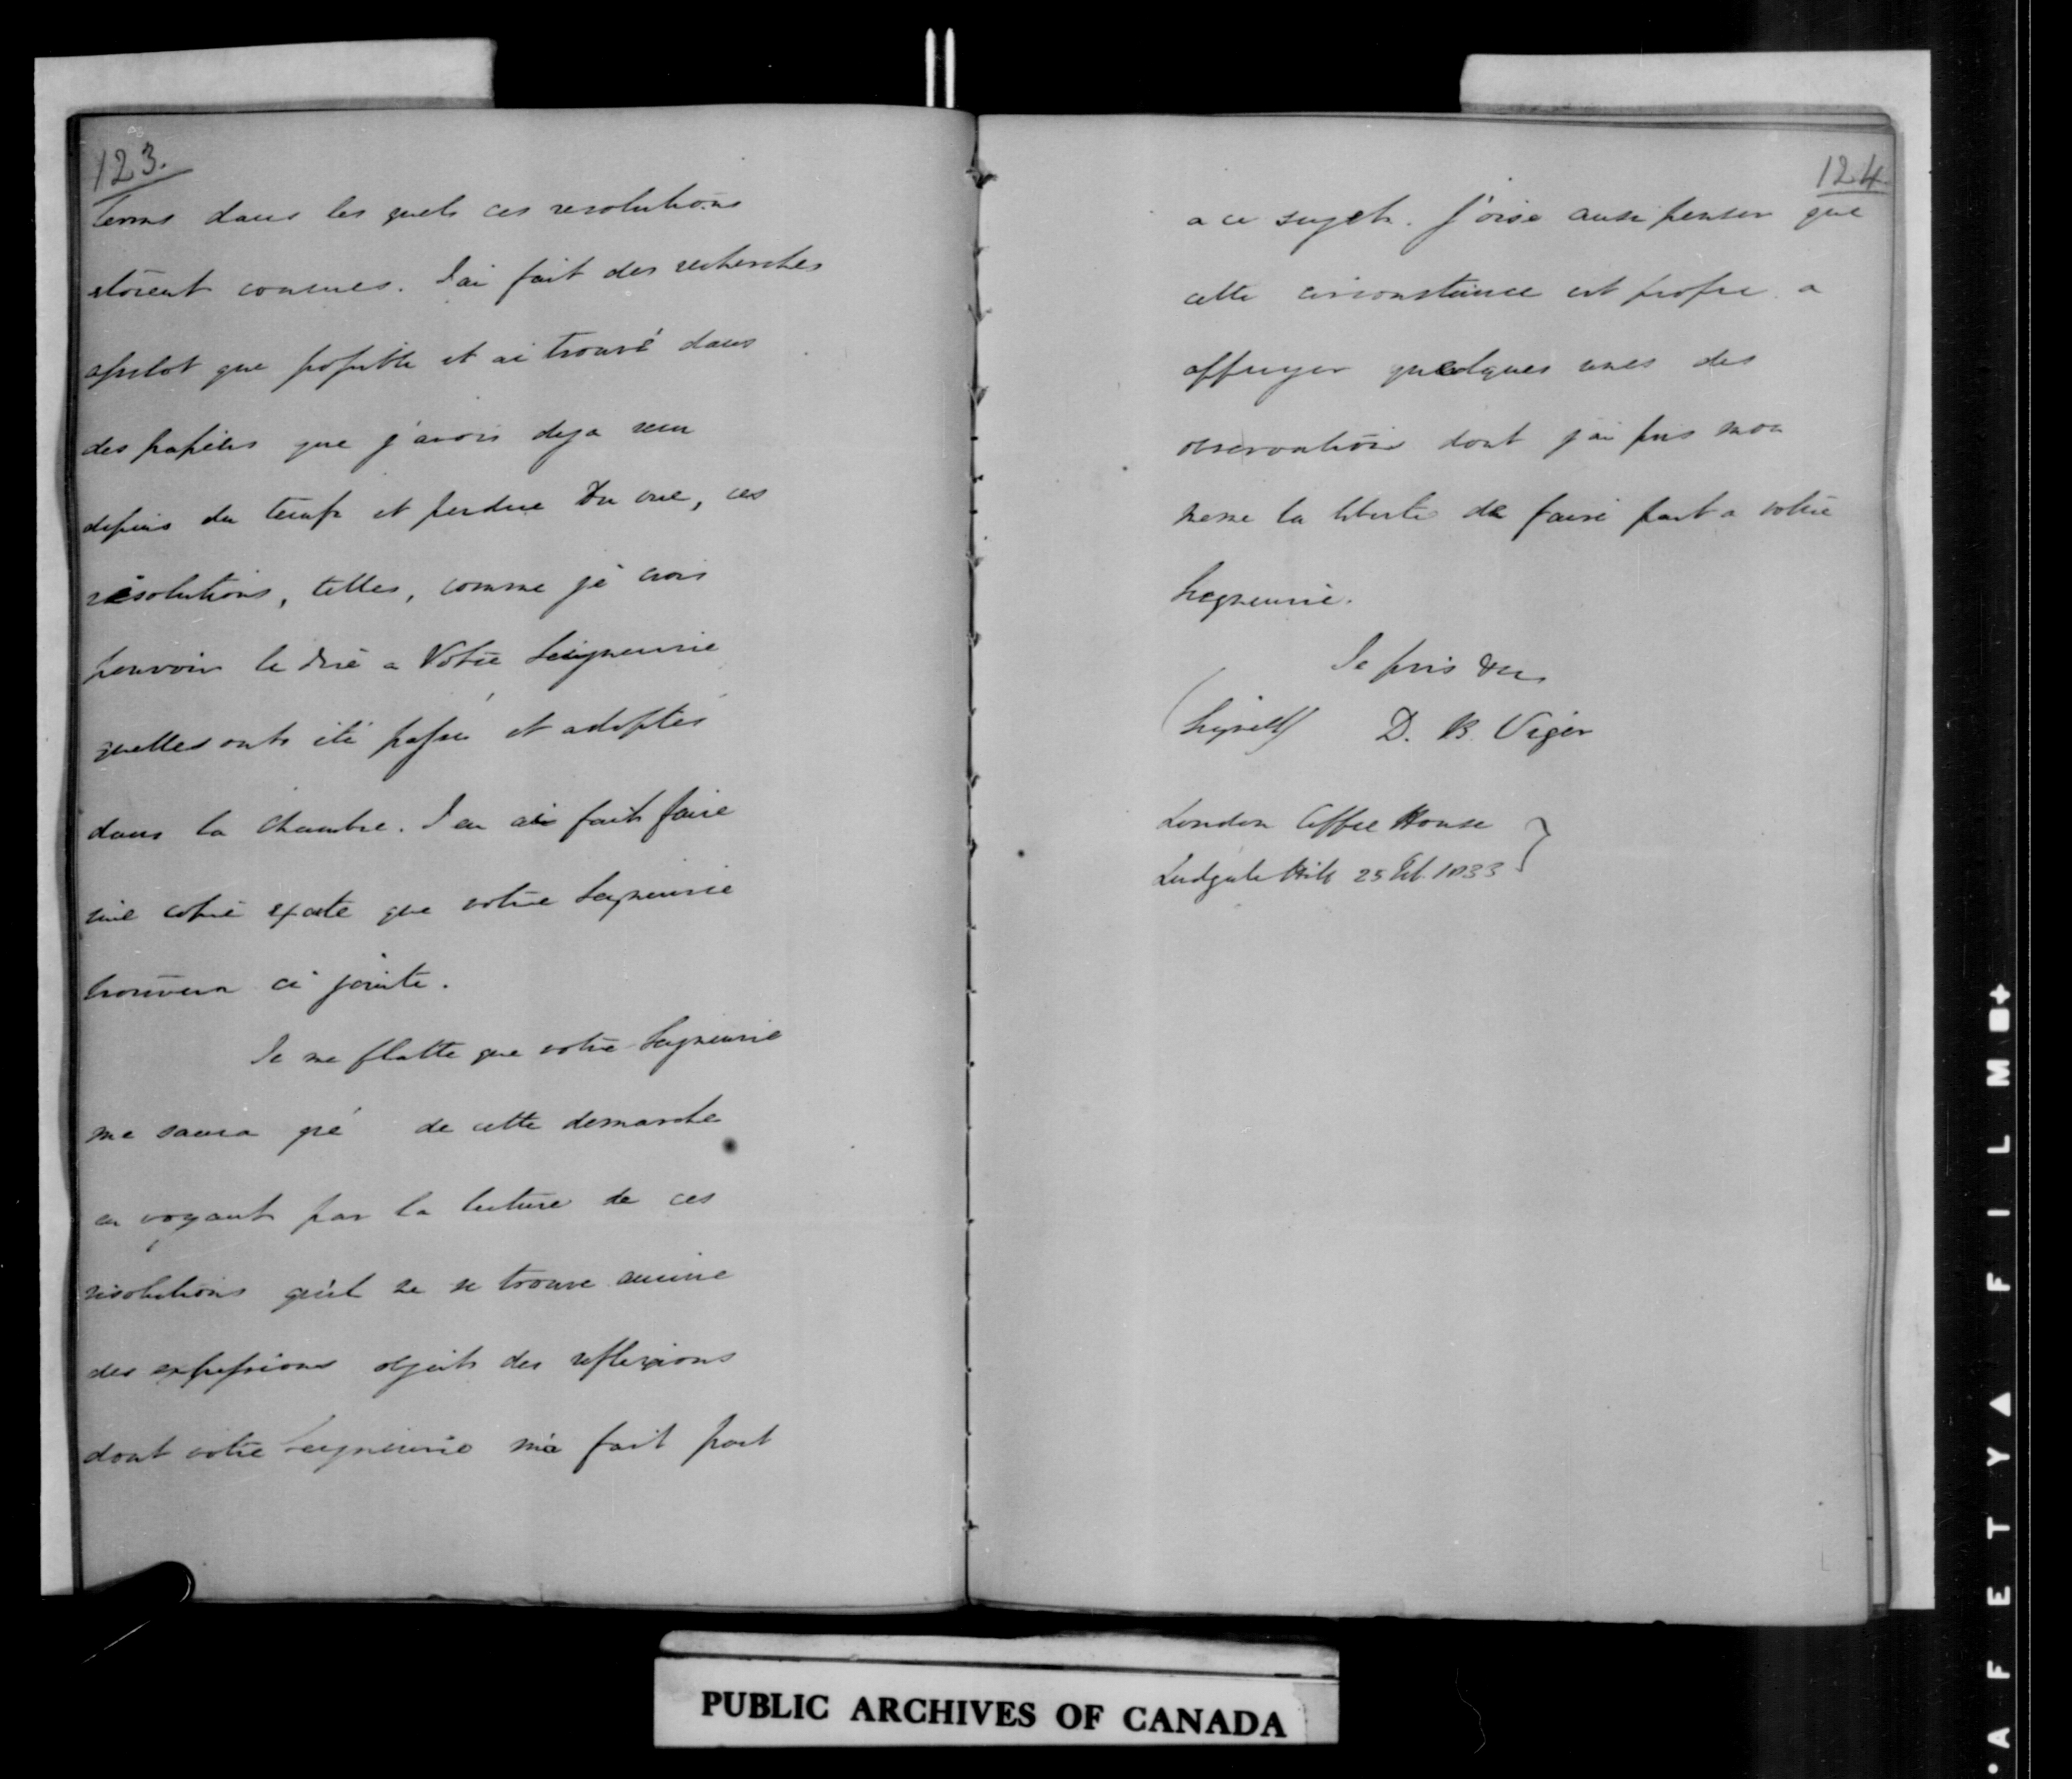 123.
termes dans les quels ces resolutions
etoient connues. J'ai fait des recherches
aussitot que possible et ai trouvé dans
des papiers que j'avois deja
depuis du temps et perdue de vue, ces
résolutions, telles, comme je crois
pouvoir le dire a Votre Seigneurie
quelles ont été passés et adoptés
dans la Chambre. J'en ai fait faire
une copie exacte que votre Seigneurie
trouvera ci jointe.
Je me flatte que votre Seigneurie
me saura gré de cette demarche
en voyant par la lecture de ces
résolutions qu'il ne se trouve aucune
des expressions objets des reflexions
dont votre Seigneurie m'a fait part
124
a ce sujet. J'ose aussi penser que
cette circonstance est propre a
appuyer quelques unes des
observations dont j'ai pris moi
meme la liberté de faire part a votre
Seigneurie.
Je suis &c
(Signed) D. B. Viger
London Coffee House
Ludgate Hill 25 Feb. 1833
PUBLIC ARCHIVES OF CANADA
•AFETYAFILM